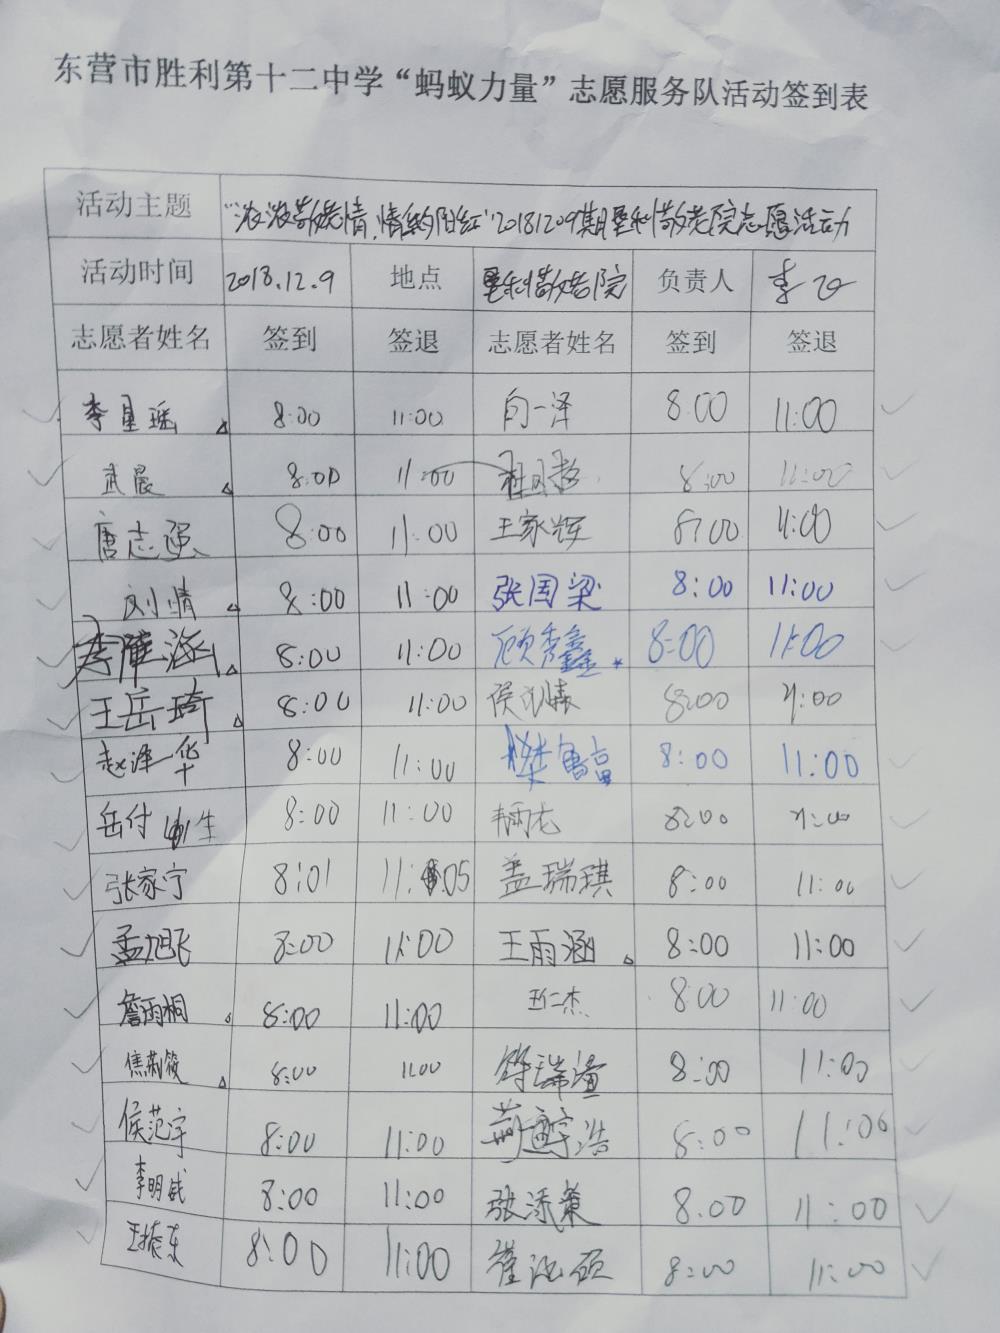 东营市胜利第十二中学“蚂蚁力量”志愿服务队活动签到表
活动主题 “浓浓敬老情,情绕夕阳红”20181209期垦利敬老院志愿活动
活动时间 2018.12.9 地点 垦利敬老院 负责人 李
志愿者姓名 签到 签退 志愿者姓名 签到 签退
李星瑶 8:00 11:00 向一泽 8:00 11:00
武晨 8:00 11:00 8:00 11:00
唐志强 8:00 11:00 王家辉 8:00 11:00
刘倩 8:00 11:00 张国梁 8:00 11:00
李雅涵 8:00 11:00 顾秀鑫 8:00 11:00
王岳琦 8:00 11:00 侯 8:00 11:00
赵泽华 8:00 11:00 8:00 11:00
岳付生 8:00 11:00 8:00 11:00
张家宁 8:01 11:05 盖瑞琪 8:00 11:00
孟旭飞 8:00 11:00 王雨涵 8:00 11:00
詹雨桐 8:00 11:00 王仁杰 8:00 11:00
焦莉筱 8:00 11:00 8:00 11:00
侯范宇 8:00 11:00 浩 8:00 11:00
李明 8:00 11:00 张添 8:00 11:00
王振东 8:00 11:00 崔 硕 8:00 11:00